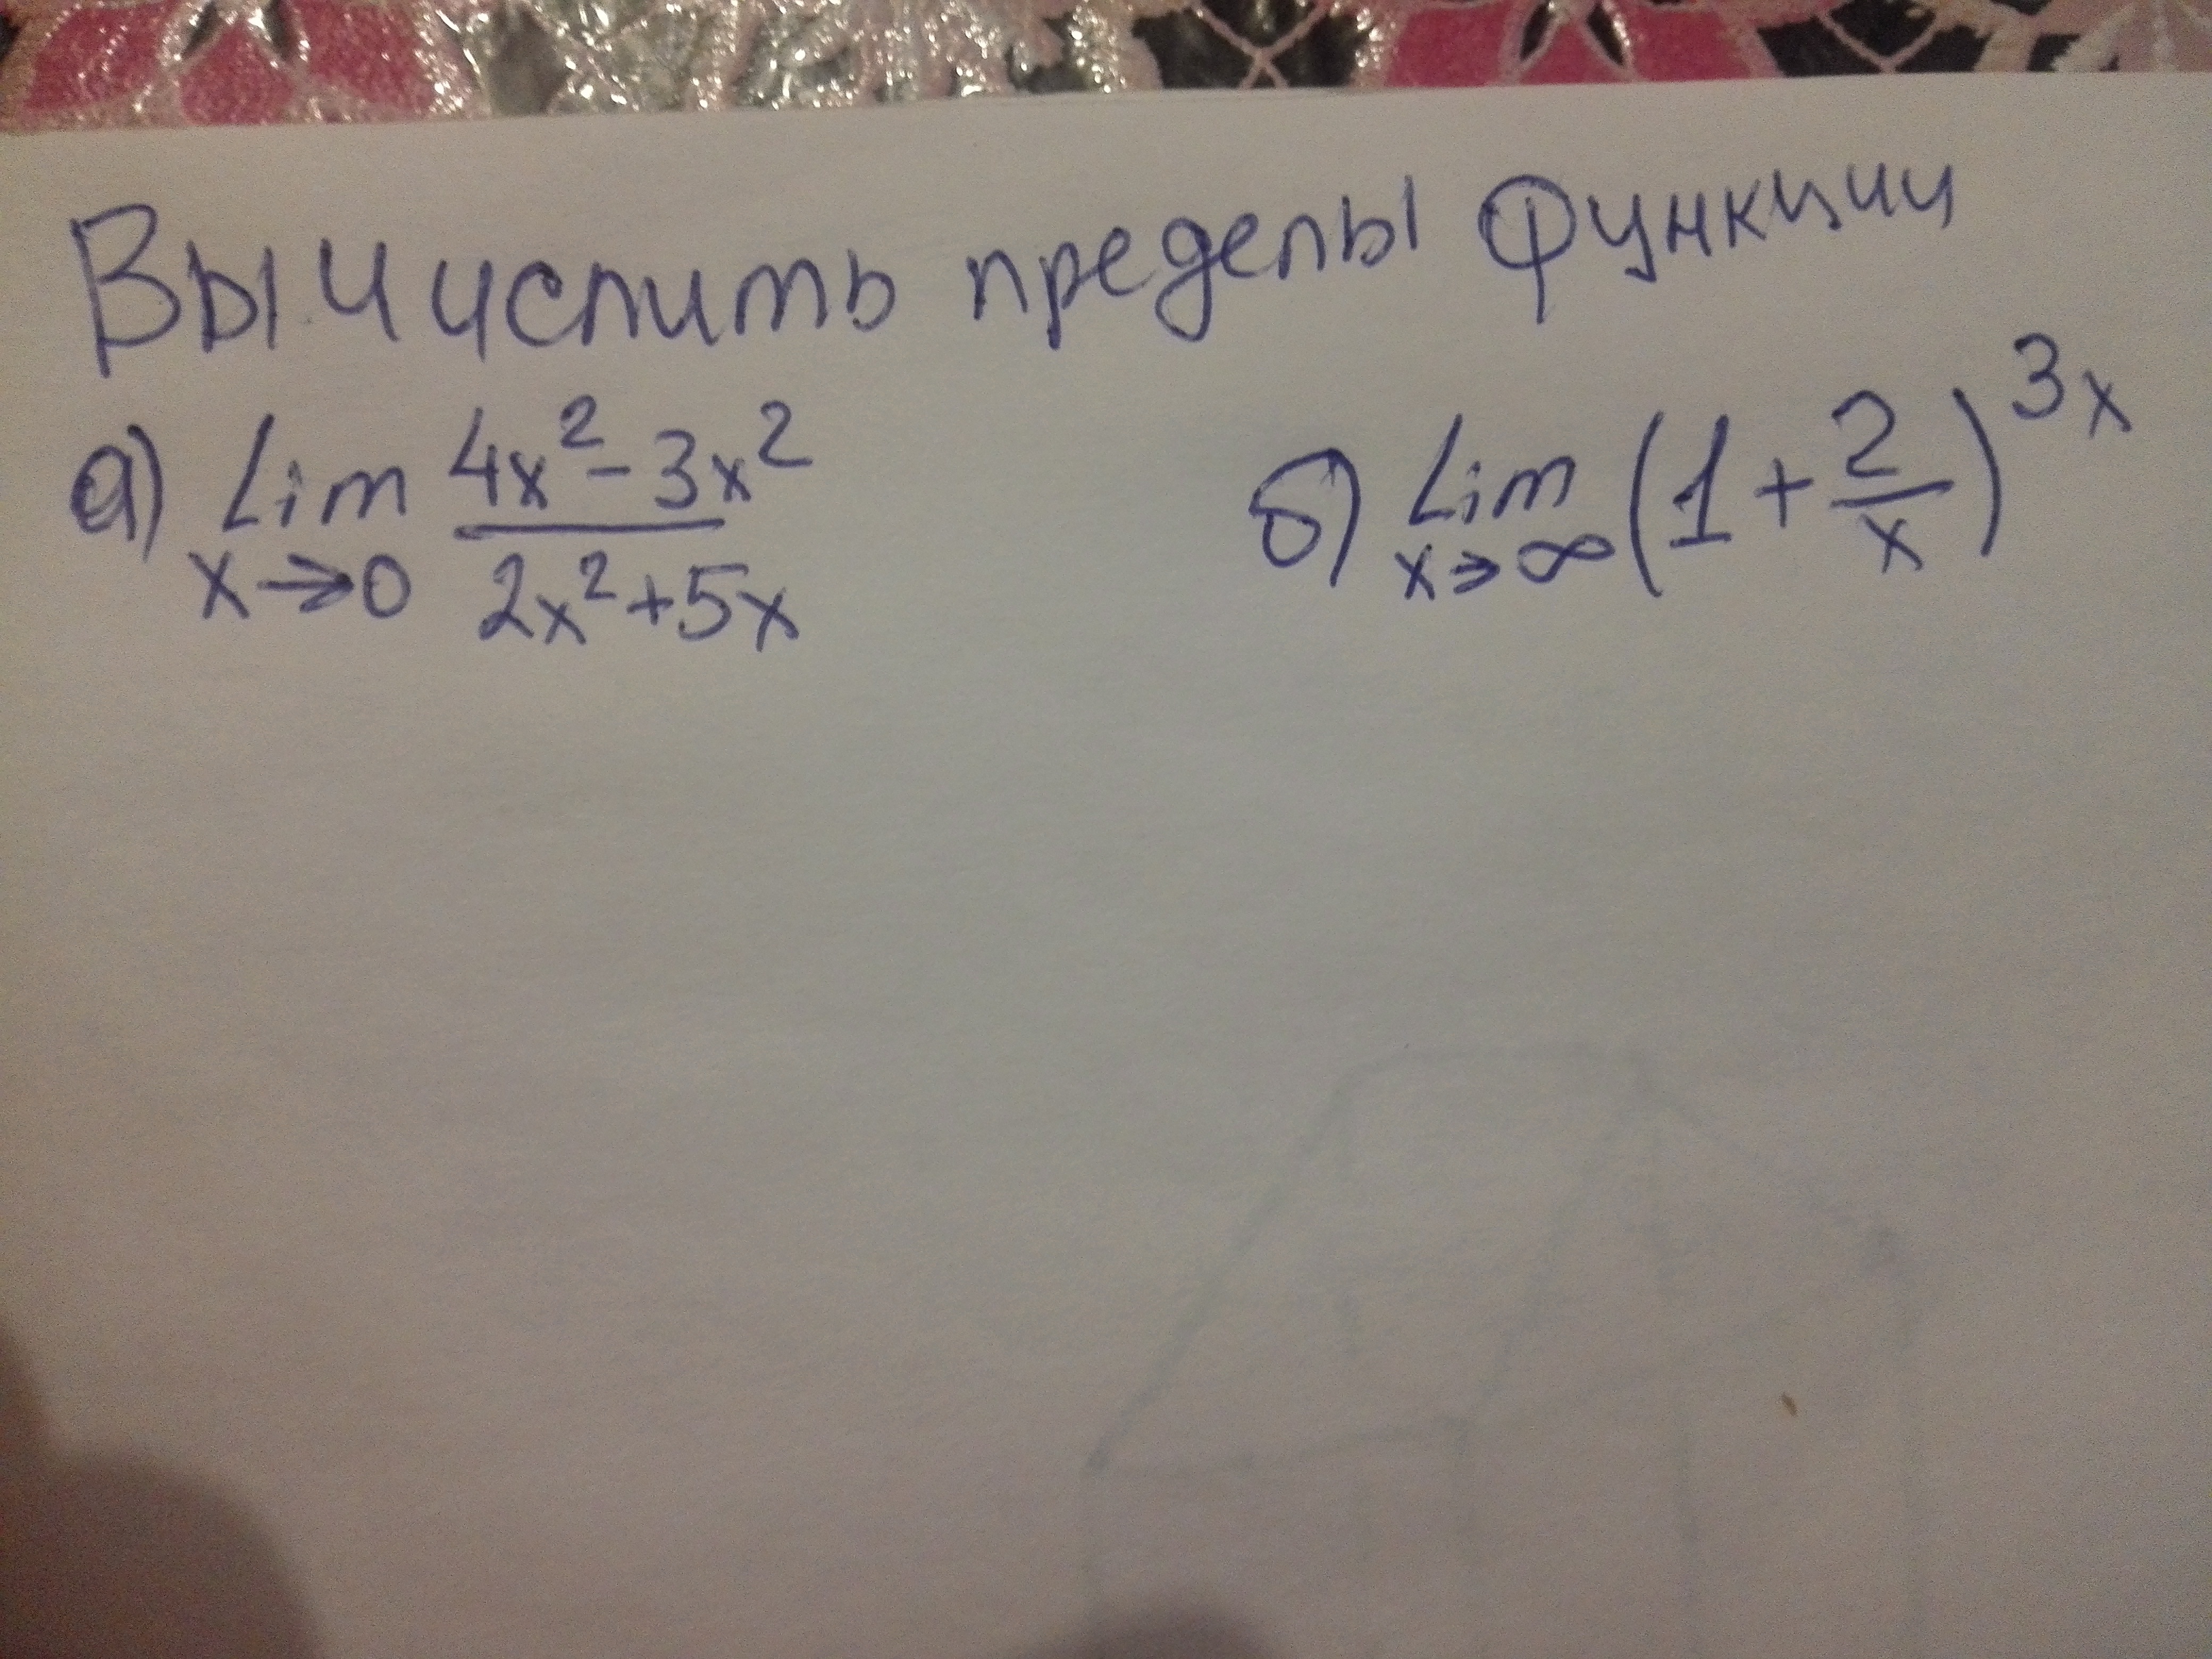 Вычислить пределы функции
а) Lim x→0 (4x²-3x²)/(2x²+5x) б) Lim x→∞ (1+2/x)³ˣ